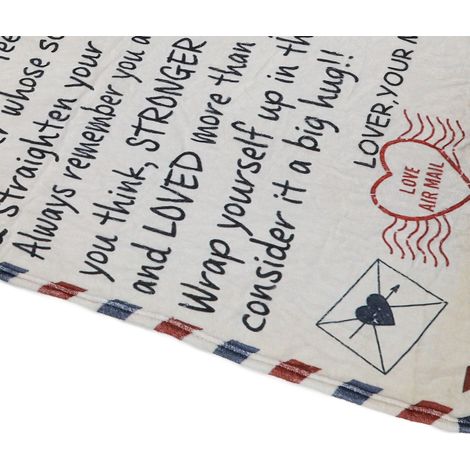 r whose so
straighten your
Always remember you a
you think, STRONGER
and LOVED more than
Wrap yourself up in th
consider it a big hug!!
LOVER,YOUR M
LOVE
AIR MAIL